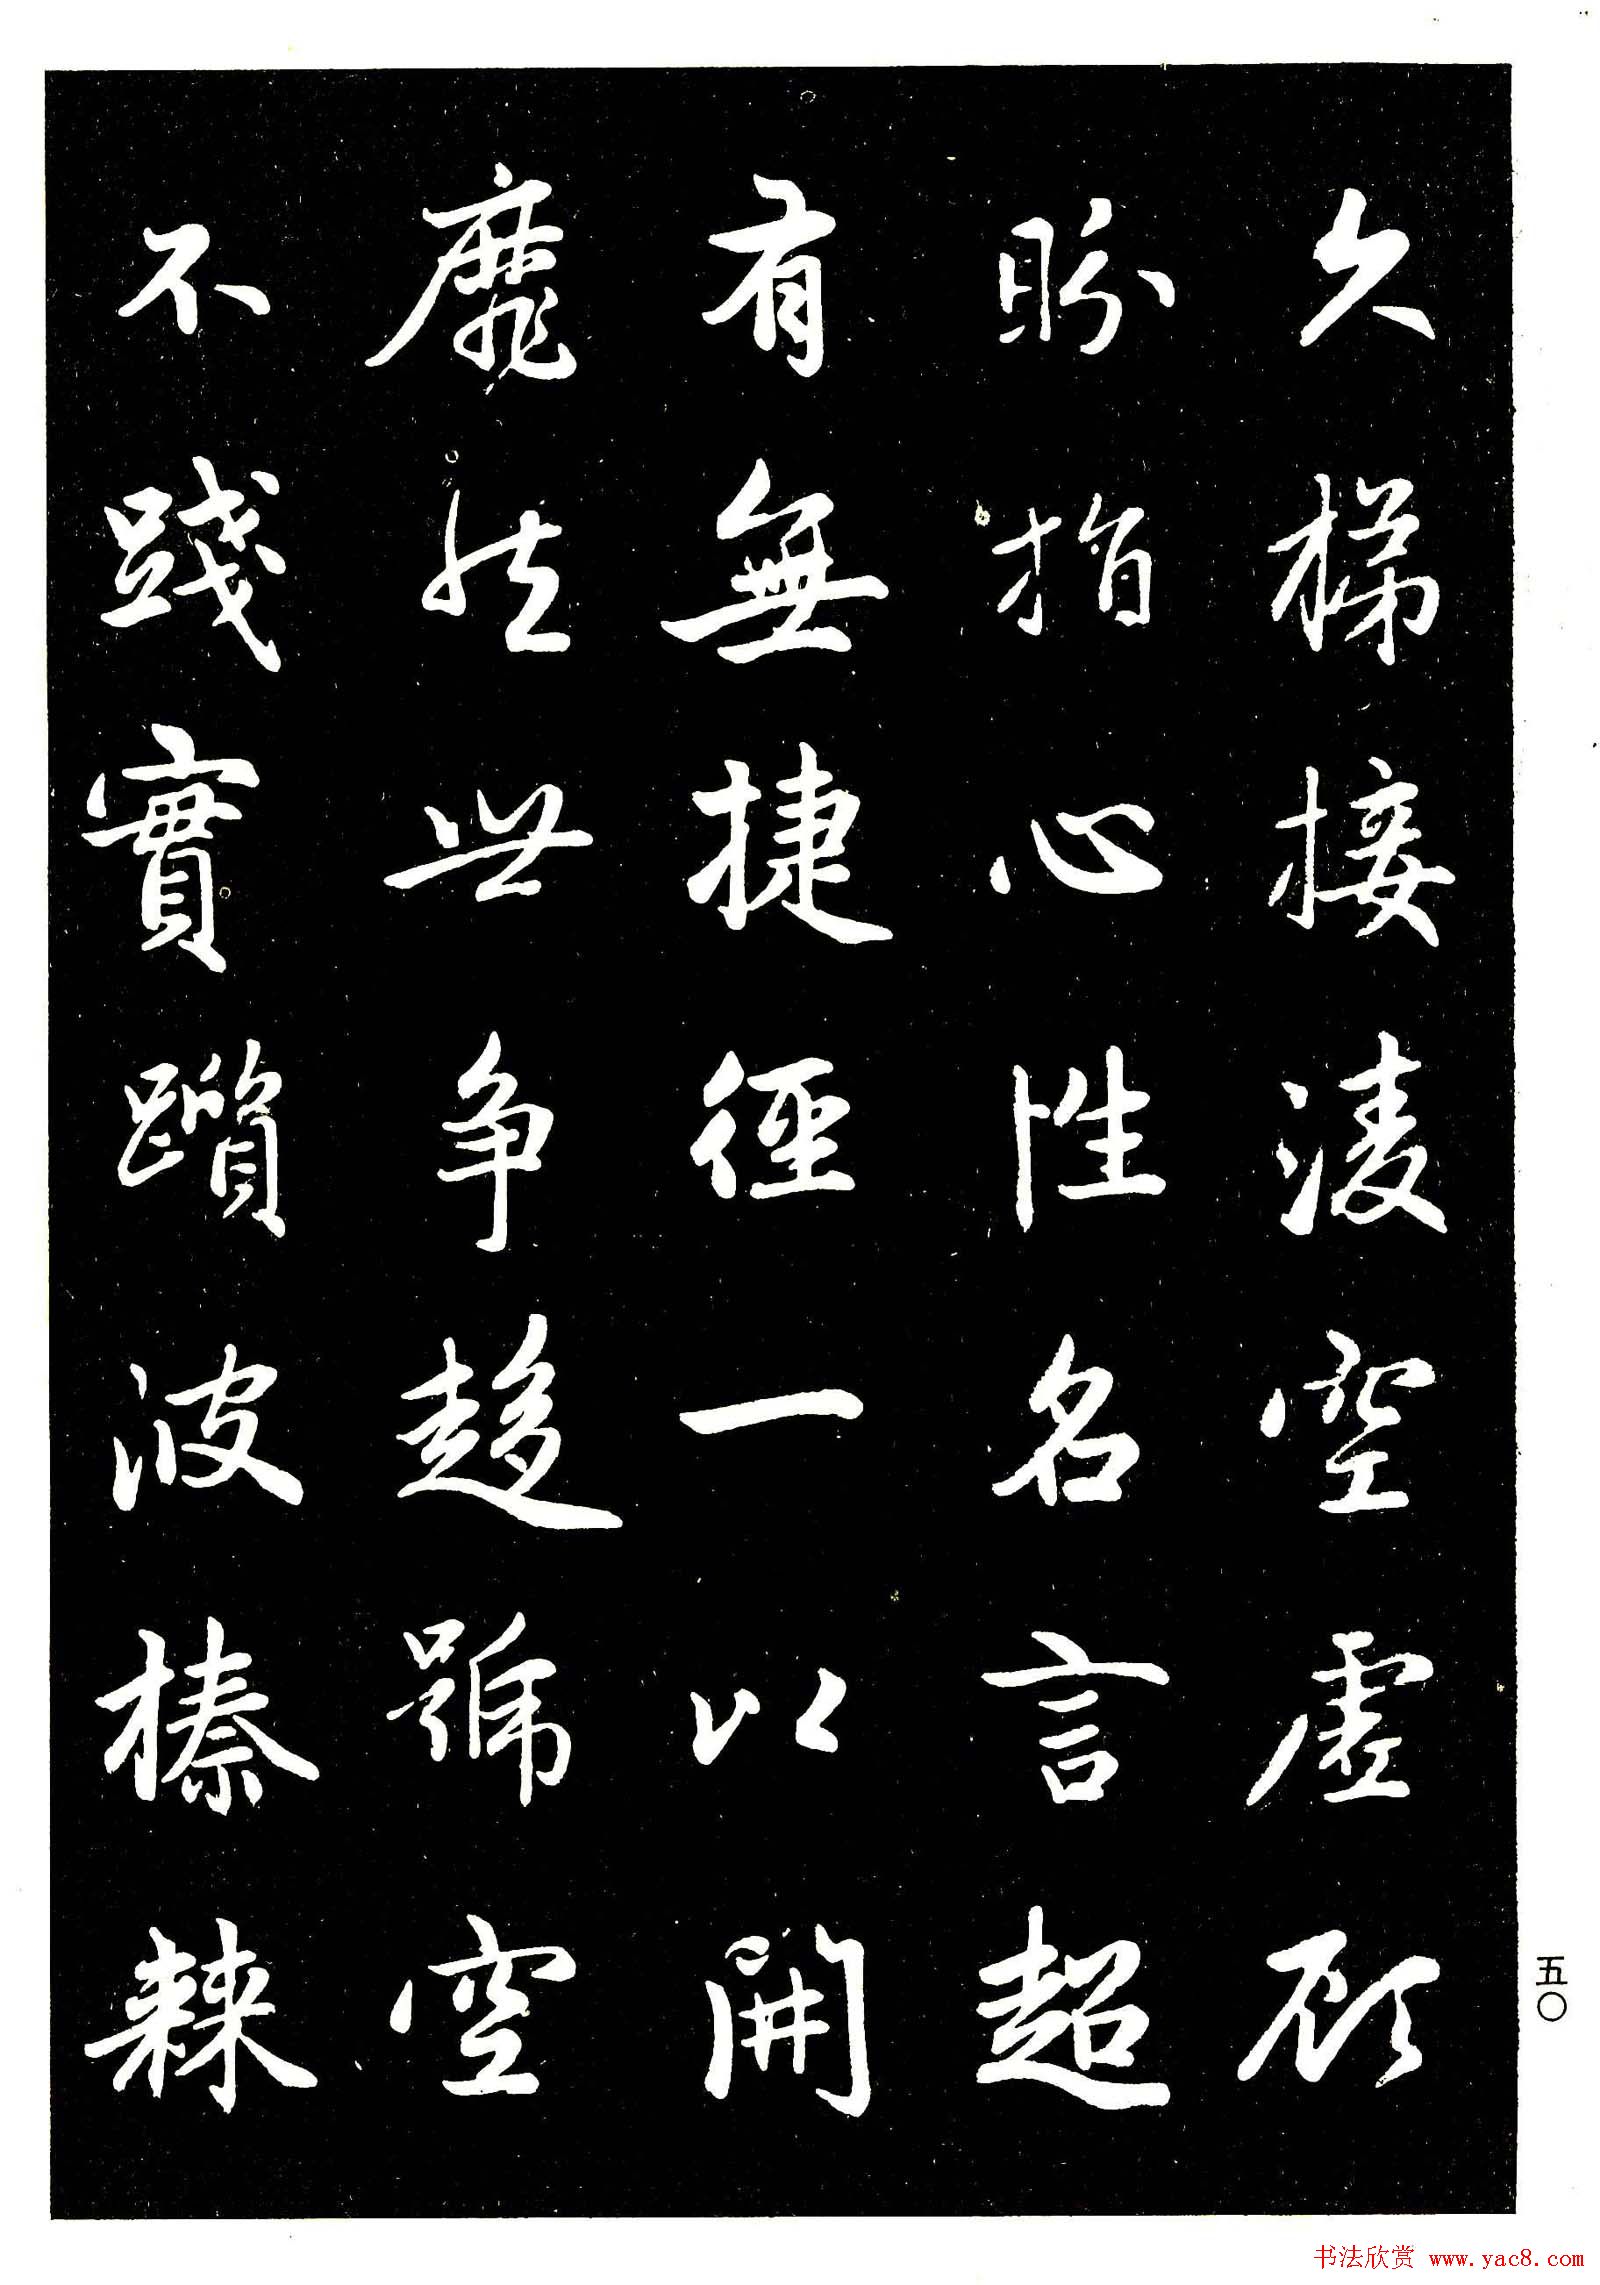 久梯接凌空虛顧
盻指心性名言超
有無捷徑一以開
靡然世爭趨號空
不踐實躓彼榛棘
五〇
书法欣赏 www.yac8.com